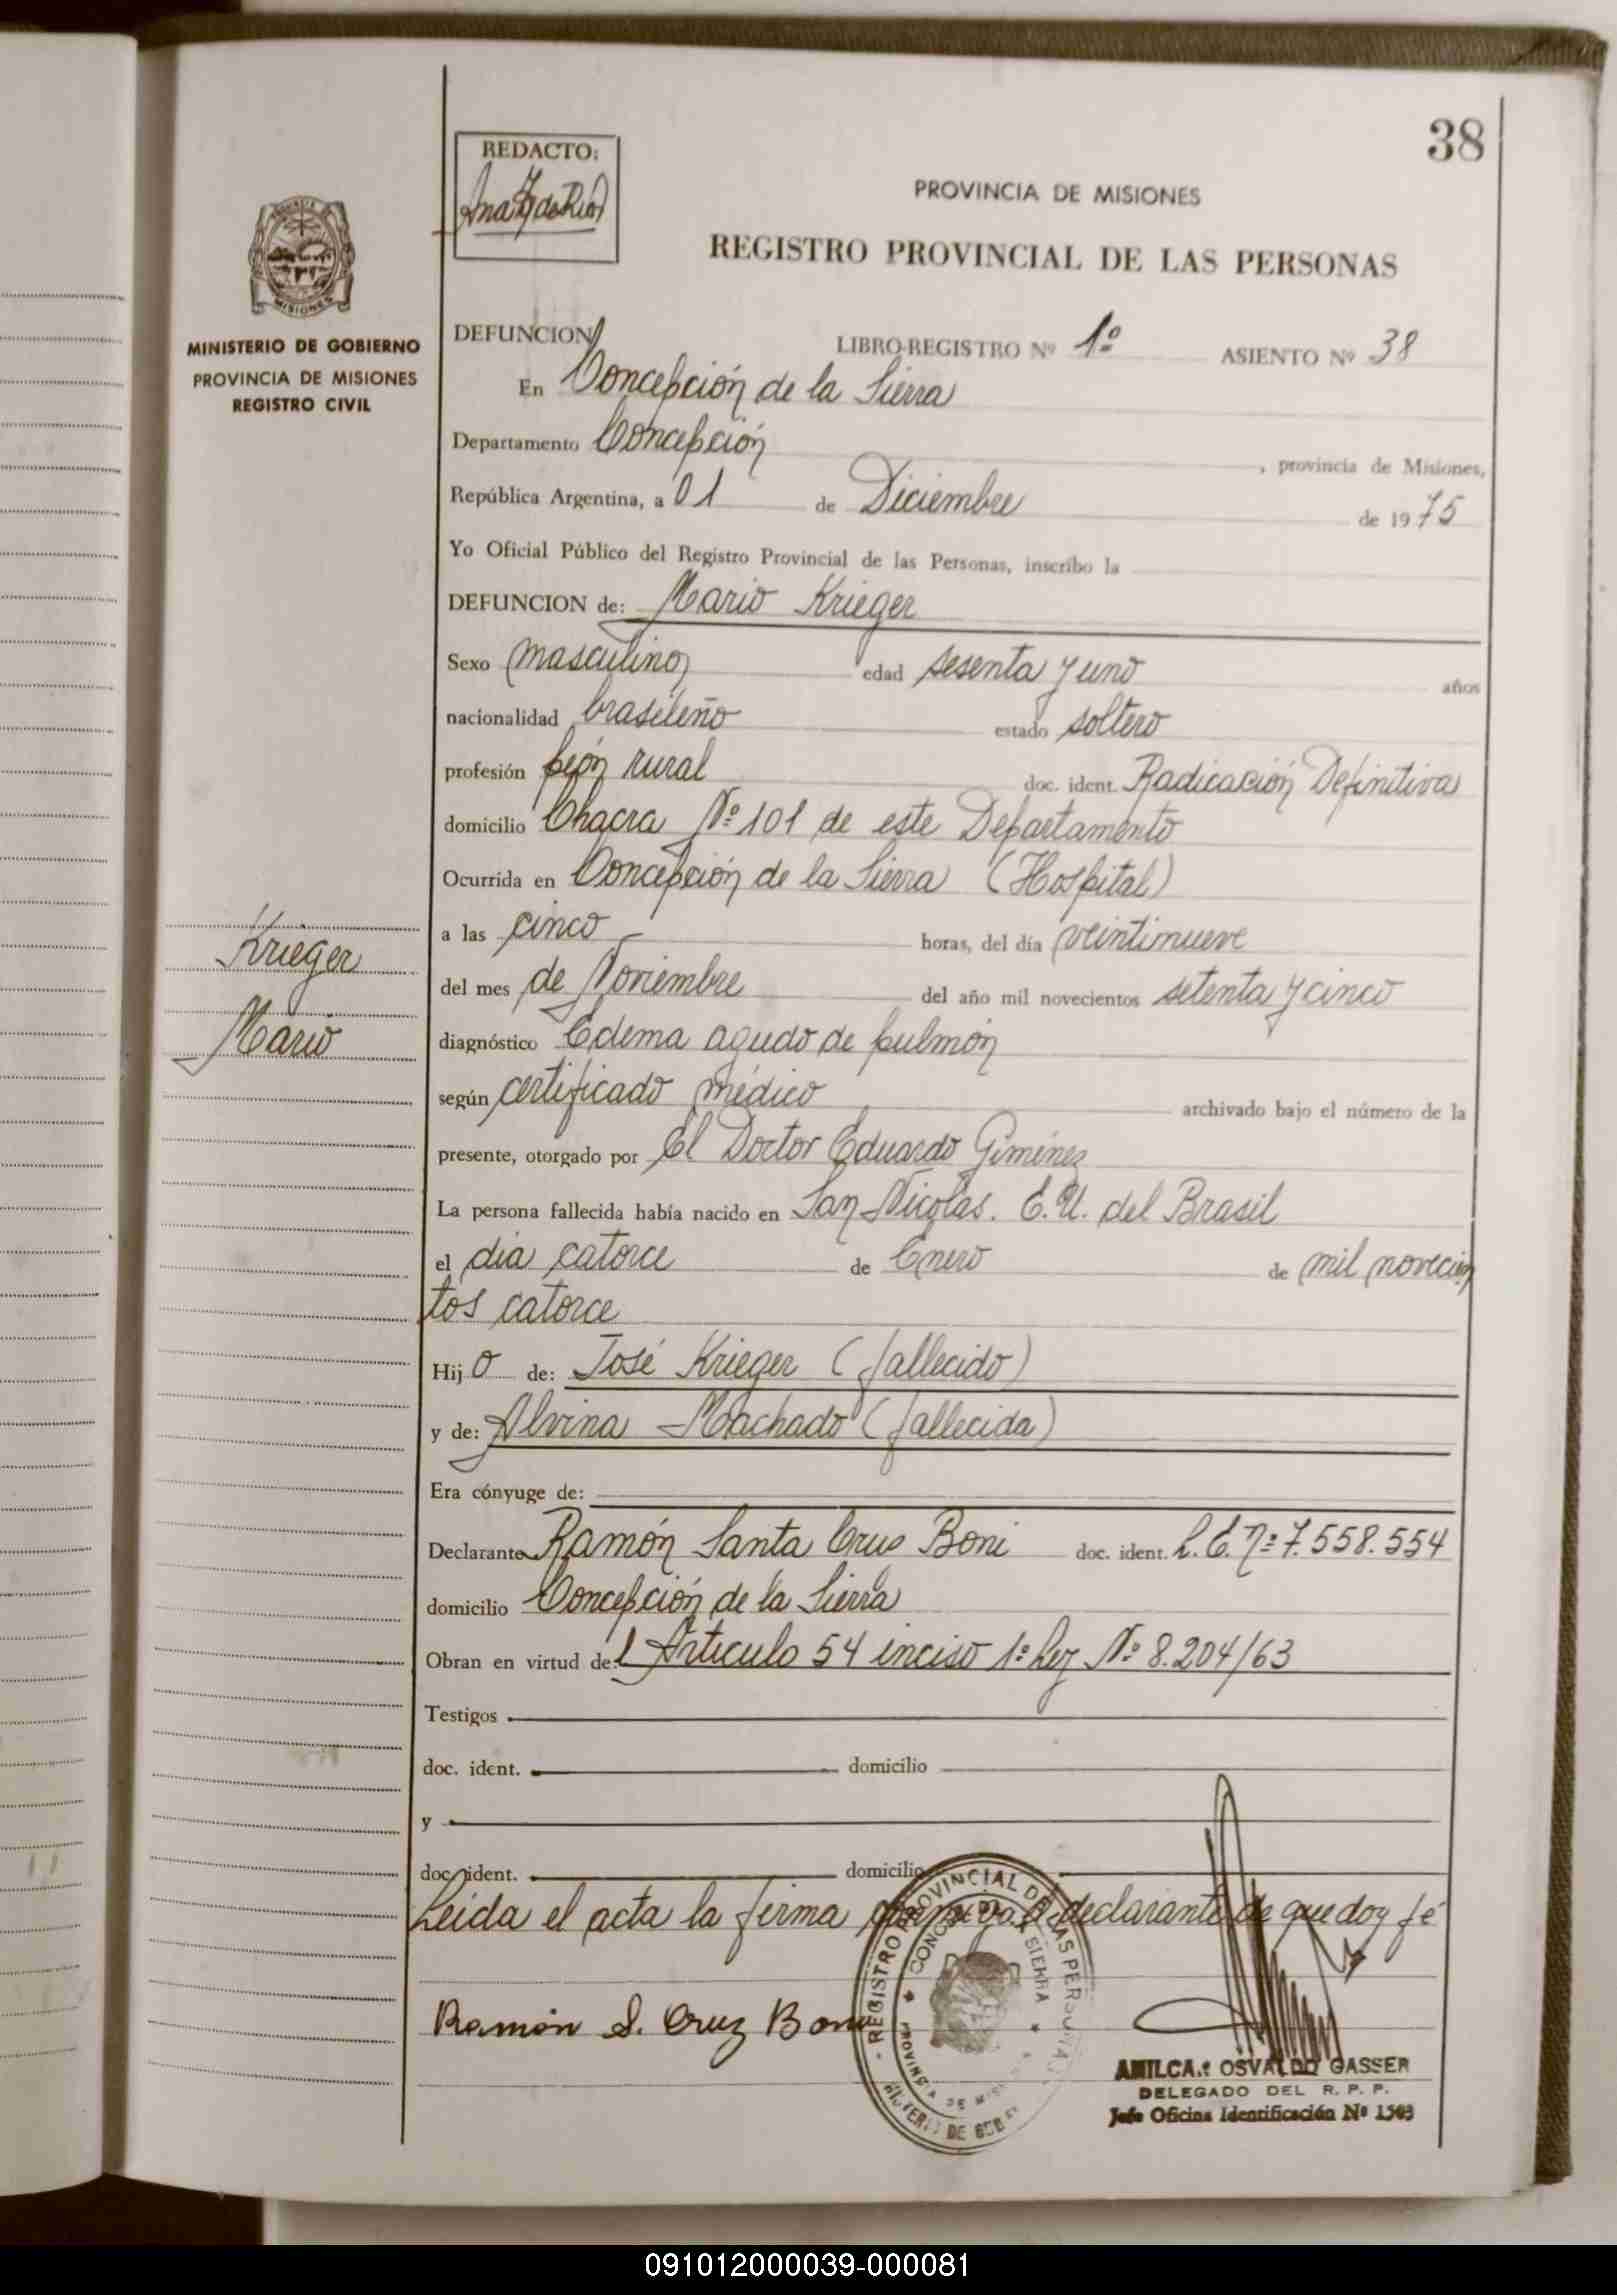 38
REDACTO:
PROVINCIA DE MISIONES
REGISTRO PROVINCIAL DE LAS PERSONAS
MISIONES
MINISTERIO DE GOBIERNO
PROVINCIA DE MISIONES
REGISTRO CIVIL
DEFUNCION LIBRO-REGISTRO Nº 1º ASIENTO Nº 38
En Concepción de la Sierra
Departamento Concepción, provincia de Misiones,
República Argentina, a 01 de Diciembre de 1975
Yo Oficial Público del Registro Provincial de las Personas, inscribo la
DEFUNCION de: Mario Krieger
Sexo masculino edad sesenta y uno años
nacionalidad brasileño estado soltero
profesión peón rural doc. ident. Radicación Definitiva
domicilio Chacra Nº 101 de este Departamento
Ocurrida en Concepción de la Sierra (Hospital)
a las cinco horas, del día veintinueve
del mes de Noviembre del año mil novecientos setenta y cinco
Krieger
Mario
diagnóstico Edema agudo de pulmón
según certificado médico archivado bajo el número de la
presente, otorgado por El Doctor Eduardo Giménez
La persona fallecida había nacido en San Nicolas. E.U. del Brasil
el día catorce de Enero de mil novecien
tos catorce
Hijo de: José Krieger (fallecido)
y de: Alvina Machado (fallecida)
Era cónyuge de:
Declarante Ramón Santa Crus Boni doc. ident. L.E. nº 7.558.554
domicilio Concepción de la Sierra
Obran en virtud del Artículo 54 inciso 1º Ley Nº 8.204/63
Testigos
doc. ident. domicilio
y
doc. ident. domicilio
Leida el acta la firma declarante de que doy fé
Ramón S. Cruz Boni
REGISTRO PROVINCIAL DE LAS PERSONAS
AMILCAR OSVALDO GASSER
DELEGADO DEL R. P. P.
Jefe Oficina Identificación Nº 1503
091012000039-000081